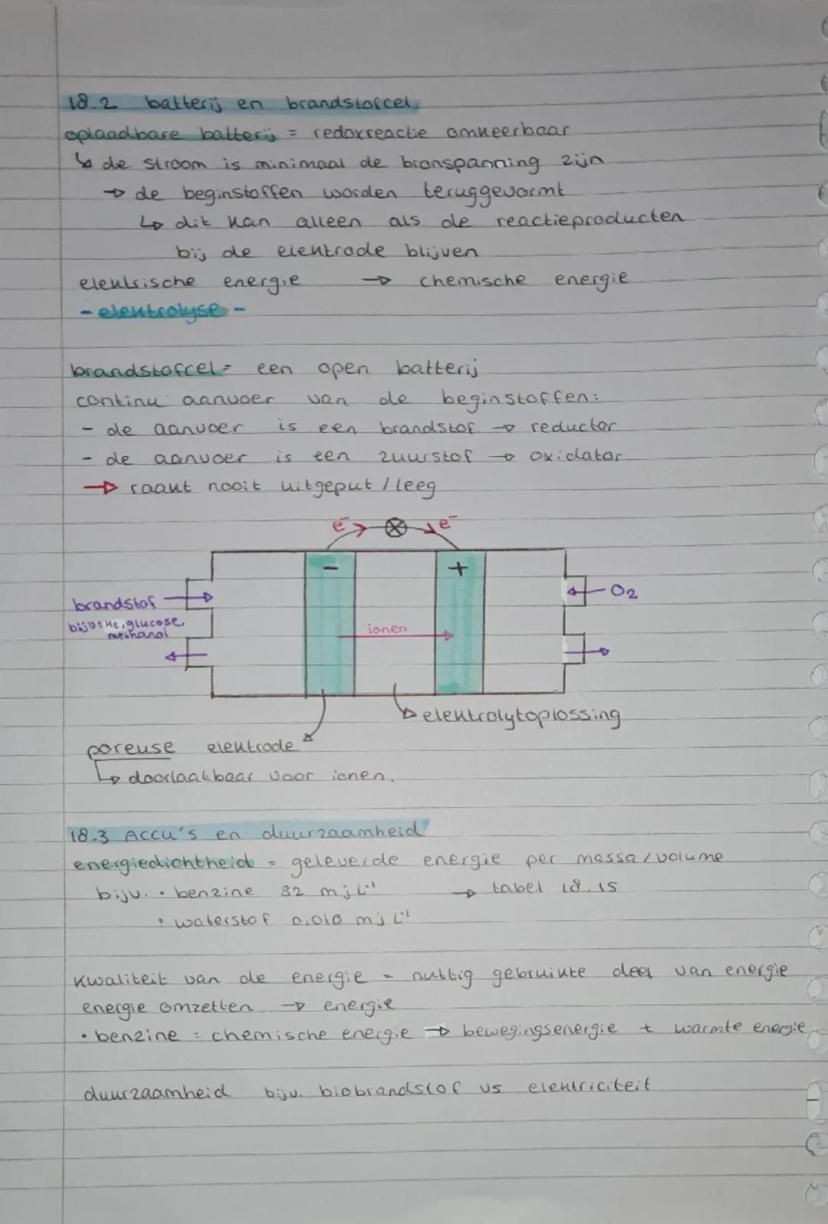 18.2 batterij en brandstofcel
oplaadbare batterij = redoxreactie omkeerbaar
↳ de stroom is minimaal de bronspanning zijn
→ de beginstoffen worden teruggevormt
↳ dit kan alleen als de reactieproducten
bij de elektrode blijven
elektrische energie → chemische energie
- elektrolyse -
brandstofcel = een open batterij
continu aanvoer van de beginstoffen:
- de aanvoer is een brandstof → reductor
- de aanvoer is een zuurstof → oxidator
→ raakt nooit uitgeput / leeg
e⁻ → ⊗ → e⁻
- +
brandstof →
← O₂
bijv: H₂, glucose,
methanol
ionen
elektrolytoplossing
poreuse elektrode
↳ doorlaatbaar voor ionen.
18.3 Accu's en duurzaamheid
energiedichtheid = geleverde energie per massa/volume
bijv. • benzine 32 mj L⁻¹ → tabel 18.15
• waterstof 0.010 mj L⁻¹
kwaliteit van de energie = nuttig gebruikte deel van energie
energie omzetten → energie
• benzine = chemische energie → bewegingsenergie + warmte energie
duurzaamheid bijv. biobrandstof vs elektriciteit